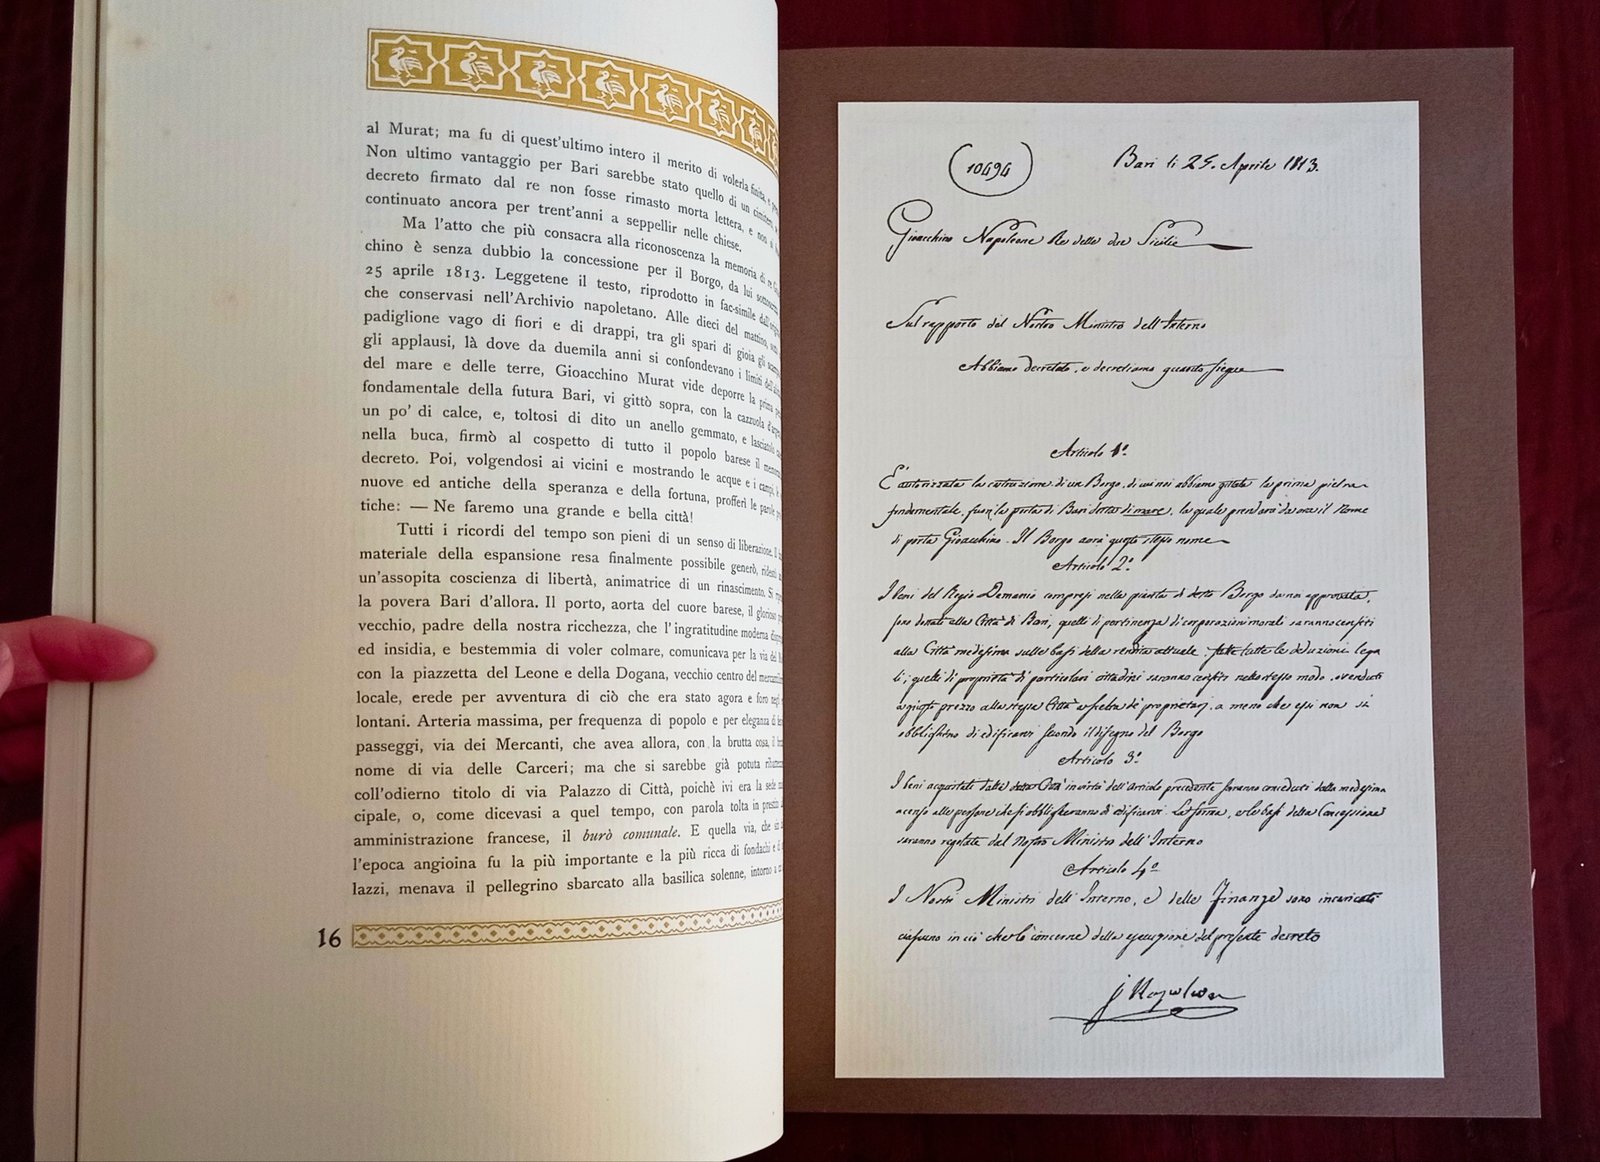 al Murat; ma fu di quest'ultimo intero il merito di volerla finita, e
Non ultimo vantaggio per Bari sarebbe stato quello di un
decreto firmato dal re non fosse rimasto morta lettera, e non si
continuato ancora per trent'anni a seppellir nelle chiese.
Ma l'atto che più consacra alla riconoscenza la memoria di re
chino è senza dubbio la concessione per il Borgo, da lui
25 aprile 1813. Leggetene il testo, riprodotto in fac-simile
che conservasi nell'Archivio napoletano. Alle dieci del mattino,
padiglione vago di fiori e di drappi, tra gli spari di gioia
gli applausi, là dove da duemila anni si confondevano i limiti
del mare e delle terre, Gioacchino Murat vide deporre la prima
fondamentale della futura Bari, vi gittò sopra, con la cazzuola
un po' di calce, e, toltosi di dito un anello gemmato, e
nella buca, firmò al cospetto di tutto il popolo barese il
decreto. Poi, volgendosi ai vicini e mostrando le acque e i campi,
nuove ed antiche della speranza e della fortuna, profferì le parole
tiche: — Ne faremo una grande e bella città!
Tutti i ricordi del tempo son pieni di un senso di liberazione.
materiale della espansione resa finalmente possibile generò,
un'assopita coscienza di libertà, animatrice di un rinascimento.
la povera Bari d'allora. Il porto, aorta del cuore barese, il glorioso
vecchio, padre della nostra ricchezza, che l'ingratitudine moderna
ed insidia, e bestemmia di voler colmare, comunicava per la via del
con la piazzetta del Leone e della Dogana, vecchio centro del
locale, erede per avventura di ciò che era stato agora e foro
lontani. Arteria massima, per frequenza di popolo e per eleganza di
passeggi, via dei Mercanti, che avea allora, con la brutta cosa, il
nome di via delle Carceri; ma che si sarebbe già potuta
coll'odierno titolo di via Palazzo di Città, poichè ivi era la sede
cipale, o, come dicevasi a quel tempo, con parola tolta in
amministrazione francese, il burò comunale. E quella via, che
l'epoca angioina fu la più importante e la più ricca di fondachi e
lazzi, menava il pellegrino sbarcato alla basilica solenne, intorno a
16
(10494)
Bari li 25. Aprile 1813.
Gioacchino Napoleone Re delle due Sicilie
Sul rapporto del Nostro Ministro dell'Interno
Abbiamo decretato, e decretiamo quanto siegue
Articolo 1.º
E' autorizzata la costruzione di un Borgo, di cui noi abbiamo gittata la prima pietra
fondamentale, fuori la porta di Bari detta di mare, la quale prenderà da ora il Nome
di porta Gioacchino. Il Borgo avrà questo stesso nome
Articolo 2.º
I beni del Regio Demanio compresi nella pianta di detto Borgo da noi approvata,
sono donati alla Città di Bari, quelli di pertinenza di corporazioni morali saranno censiti
alla Città medesima sulle basi della rendita attuale, fatte tutte le deduzioni lega
li; quelli di proprietà di particolari cittadini saranno censiti nello stesso modo, o venduti
a giusto prezzo alla stessa Città a scelta de' proprietarj, a meno che essi non si
obblighino di edificarvi secondo il disegno del Borgo
Articolo 3.º
I beni acquistati dalla detta Città in virtù dell'Articolo precedente saranno conceduti dalla medesima
a censo alle persone che si obbligheranno di edificarvi. La forma, e le basi della Concessione
saranno regolate dal Nostro Ministro dell'Interno
Articolo 4.º
I Nostri Ministri dell'Interno, e delle Finanze sono incaricati
ciascuno in ciò che lo concerne della esecuzione del presente decreto
J Napoleon